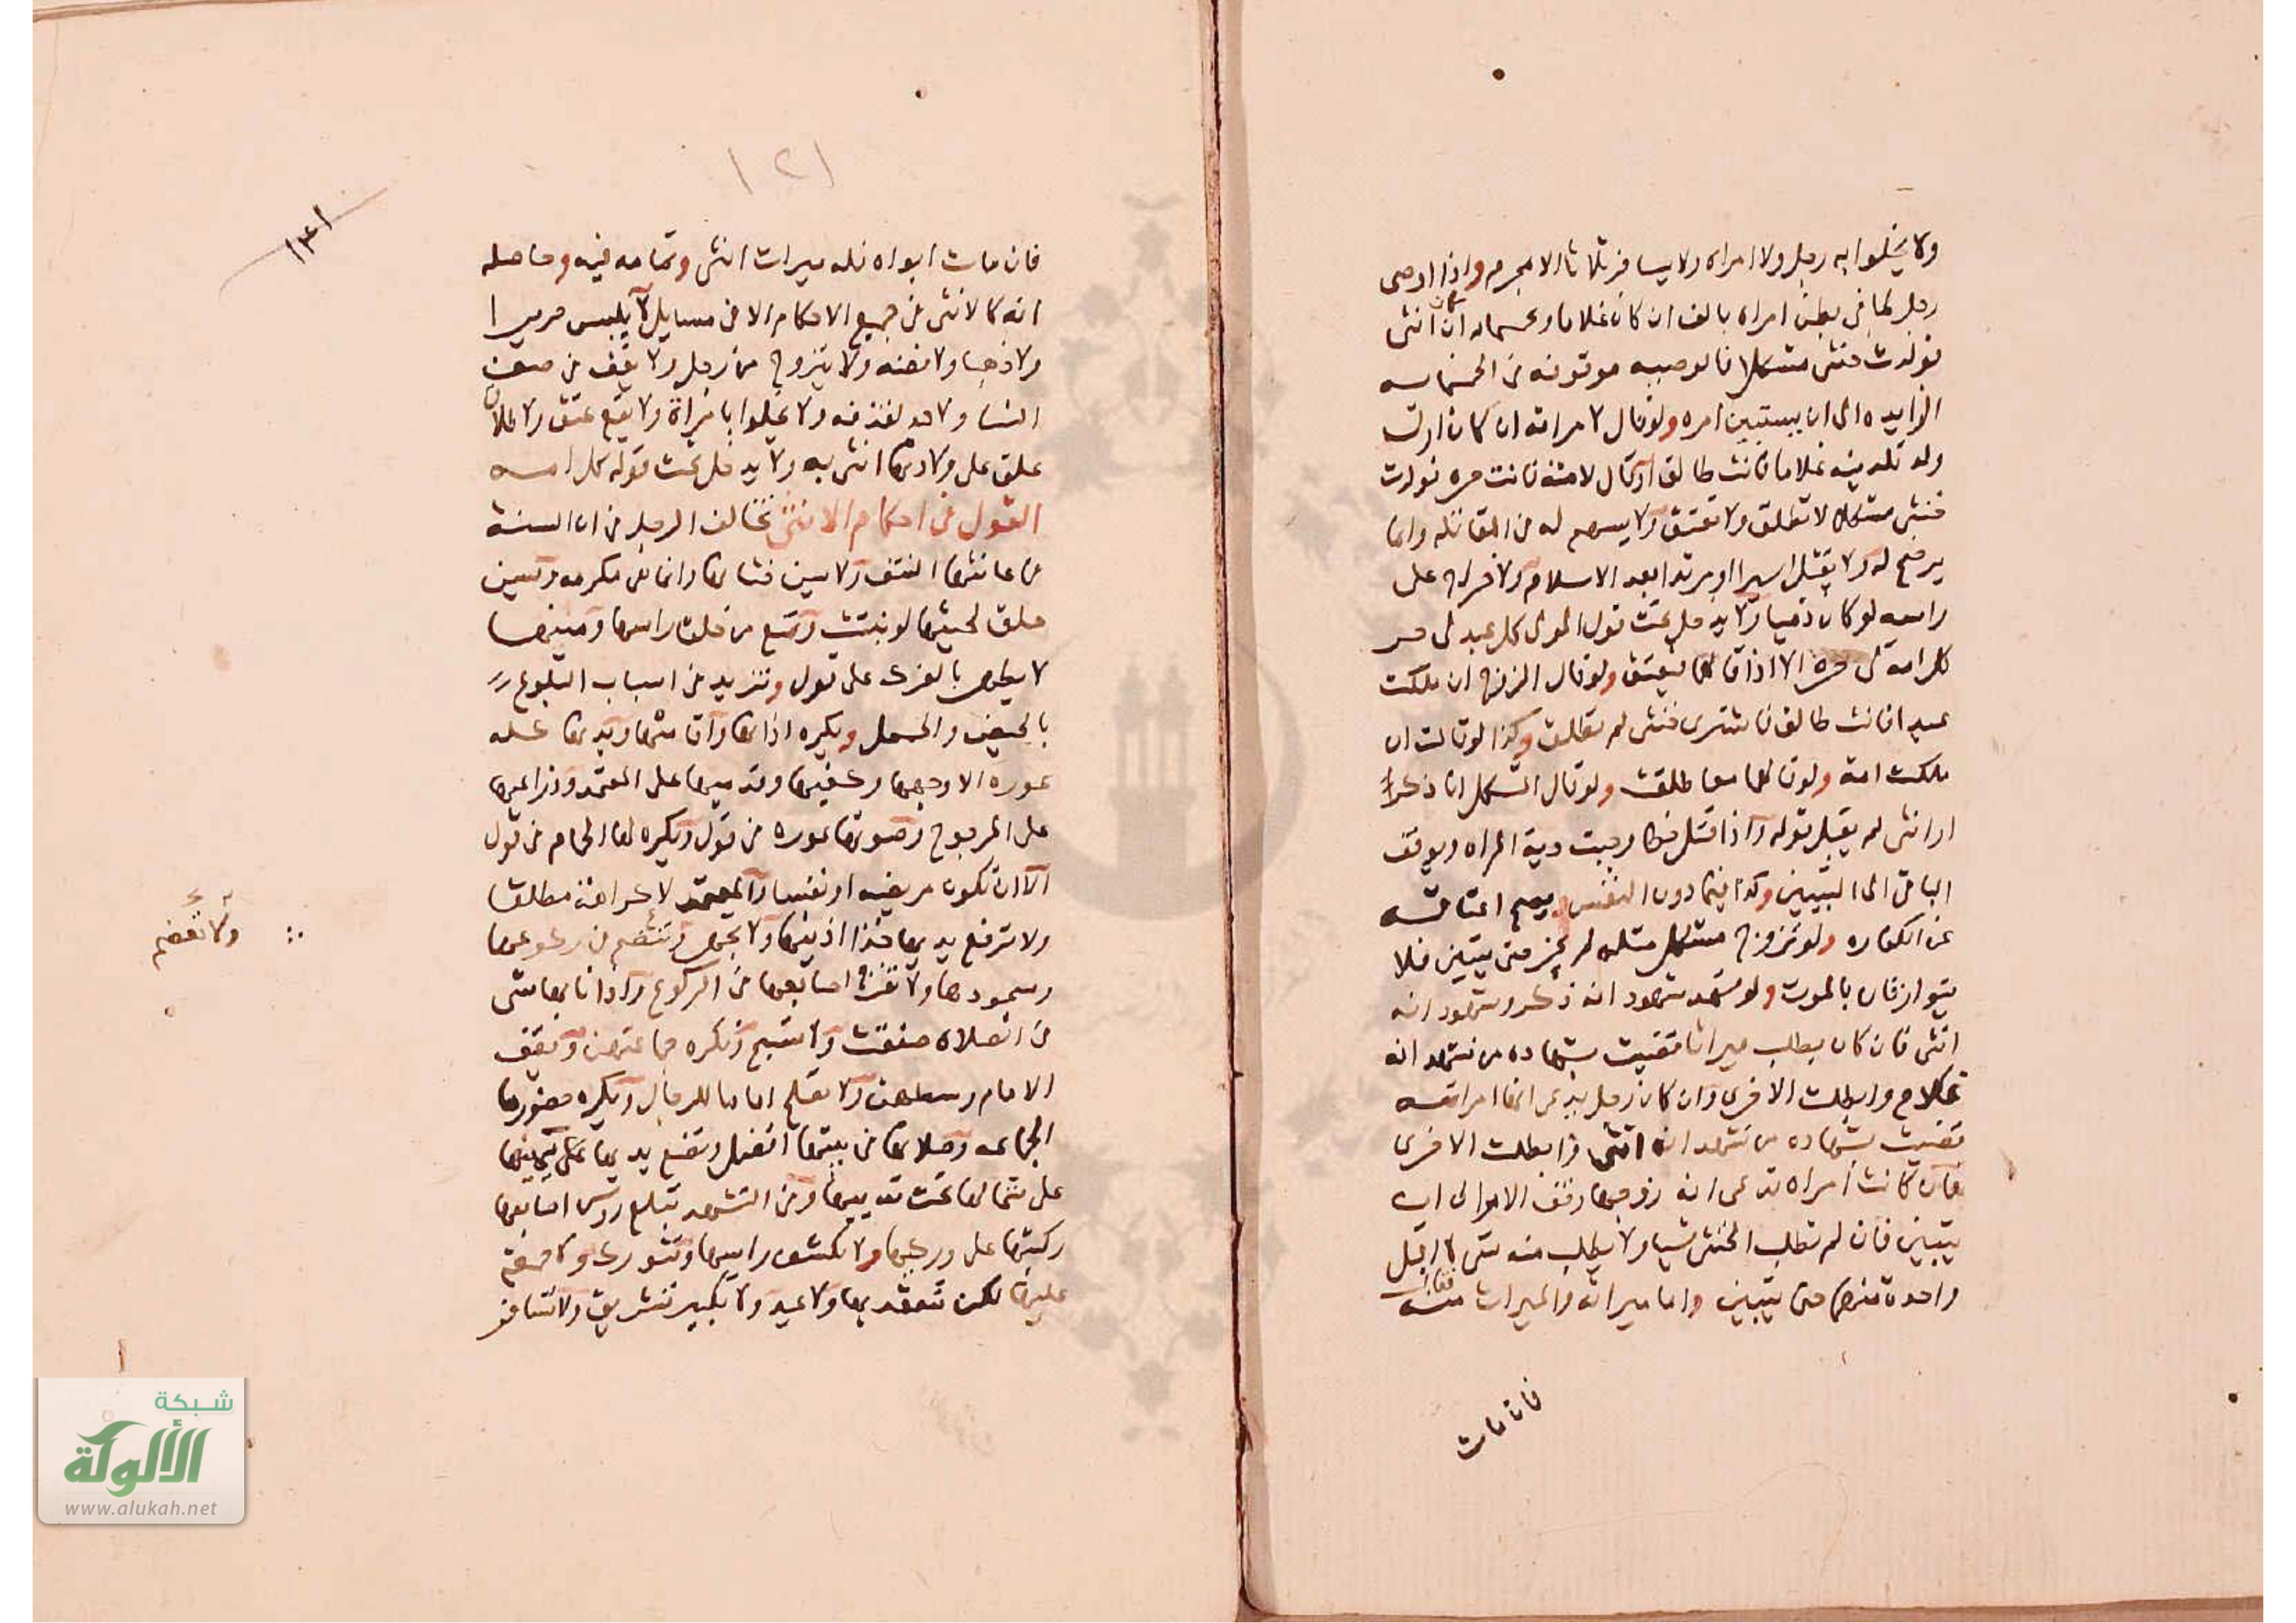 ولا يخلوا به رجل ولا امراه ولا يسافر ثلاثا الا بمحرم واذا اوصى
رجل لما في بطن امراه بالف ان كان غلاما وخمسمايه ان كان انثى
فولدت خنثى مشكلا فالوصيه موقوفه في الخمسمايه
الزايده الى ان يستبين امره ولو قال لامراته ان كان اول
ولد تلدينه غلاما فانت طالق او قال لامته فانت حره فولدت
خنثى مشكلا لا تطلق ولا تعتق ولا يسهم له من المقاتله وانما
يرضخ له ولا يقتل اسيرا او مرتدا بعد الاسلام ولا خراج على
راسه لو كان ذميا ولا يدخل تحت قول المولى كل عبد لي حر
كل امة لي حره الا اذا قالهما فيعتق ولو قال الزوج ان ملكت
عبدا فانت طالق فاشترى خنثى لم تطلق وكذا لو قالت ان
ملكت امة ولو قالهما معا طلقت ولو قال المشكل انا ذكر
او انثى لم يقبل قوله واذا قتل خطا وجبت دية المراه ويوقف
الباقي الى التبيين وكذا فيما دون النفس ويصح اعتاقه
عن الكفاره ولو تزوج مشكل مثله لم يجز حتى يتبين فلا
يتوارثان بالموت ولو شهد شهود انه ذكر وشهود انه
انثى فان كان يطلب ميراثا قضيت بشهاده من شهد انه
غلام وابطلت الاخرى وان كان رجل يدعى انها امراته
قضيت بشهاده من شهد انه انثى وابطلت الاخرى
فان كانت امراه تدعى انه زوجها وقف الامر الى ان
يتبين فان لم تطلب الخنثى شيا ولا يطلب منه شى لا اقبل
واحدة منهما حتى يتبين واما ميراثه والميراث منه فقالو
فان مات
١٢١
١٣١
فان مات ابواه فله ميراث انثى وتمامه فيه وحاصله
انه كالانثى في جميع الاحكام الا في مسايل لا يلبس حريرا
ولا ذهبا ولا فضه ولا يتزوج من رجل ولا يقف في صف
النسا ولا حد لقذفه ولا يخلوا بامراة ولا يقع عتق ولا طلاق
علق على ولادتها انثى به ولا يدخل تحت قوله كل امه
القول في احكام الانثى تخالف الرجل في ان السنة
في عانتها النتف ولا يسن ختانها وانما هو مكرمه ويسن
حلق لحيتها لو نبتت وتمنع من حلق راسها ومنيها
لا يطهر بالفرك على قول وتزيد في اسباب البلوغ
بالحيض والحمل ويكره اذانها واقامتها وبدنها كله
عوره الا وجهها وكفيها وقدميها على المعتمد وذراعيها
على المرجوح وصوتها عوره في قول ويكره لها الحمام في قول
الا ان تكون مريضه او نفسا والمعتمد لا كراهة مطلقا
ولا ترفع يديها حذا اذنيها ولا تجهر وتنضم في ركوعها
وسجودها ولا تفرج اصابعها في الركوع واذا نابها شى
في الصلاه صفقت ولا تسبح وتكره جماعتهن وتقف
الامام وسطهن ولا تصلح اماما للرجال ويكره حضورها
الجماعه وصلاتها في بيتها افضل وتضع يديها على يمينها
على شمالها تحت ثدييها وفي التشهد تبلغ روس اصابعها
ركبتها على وركيها ولا تكشف راسها وتتورك ولا جمعة
عليها لكن تنعقد بها ولا عيد ولا تكبير تشريق ولا تسافر
شبكة
الألوكة
www.alukah.net